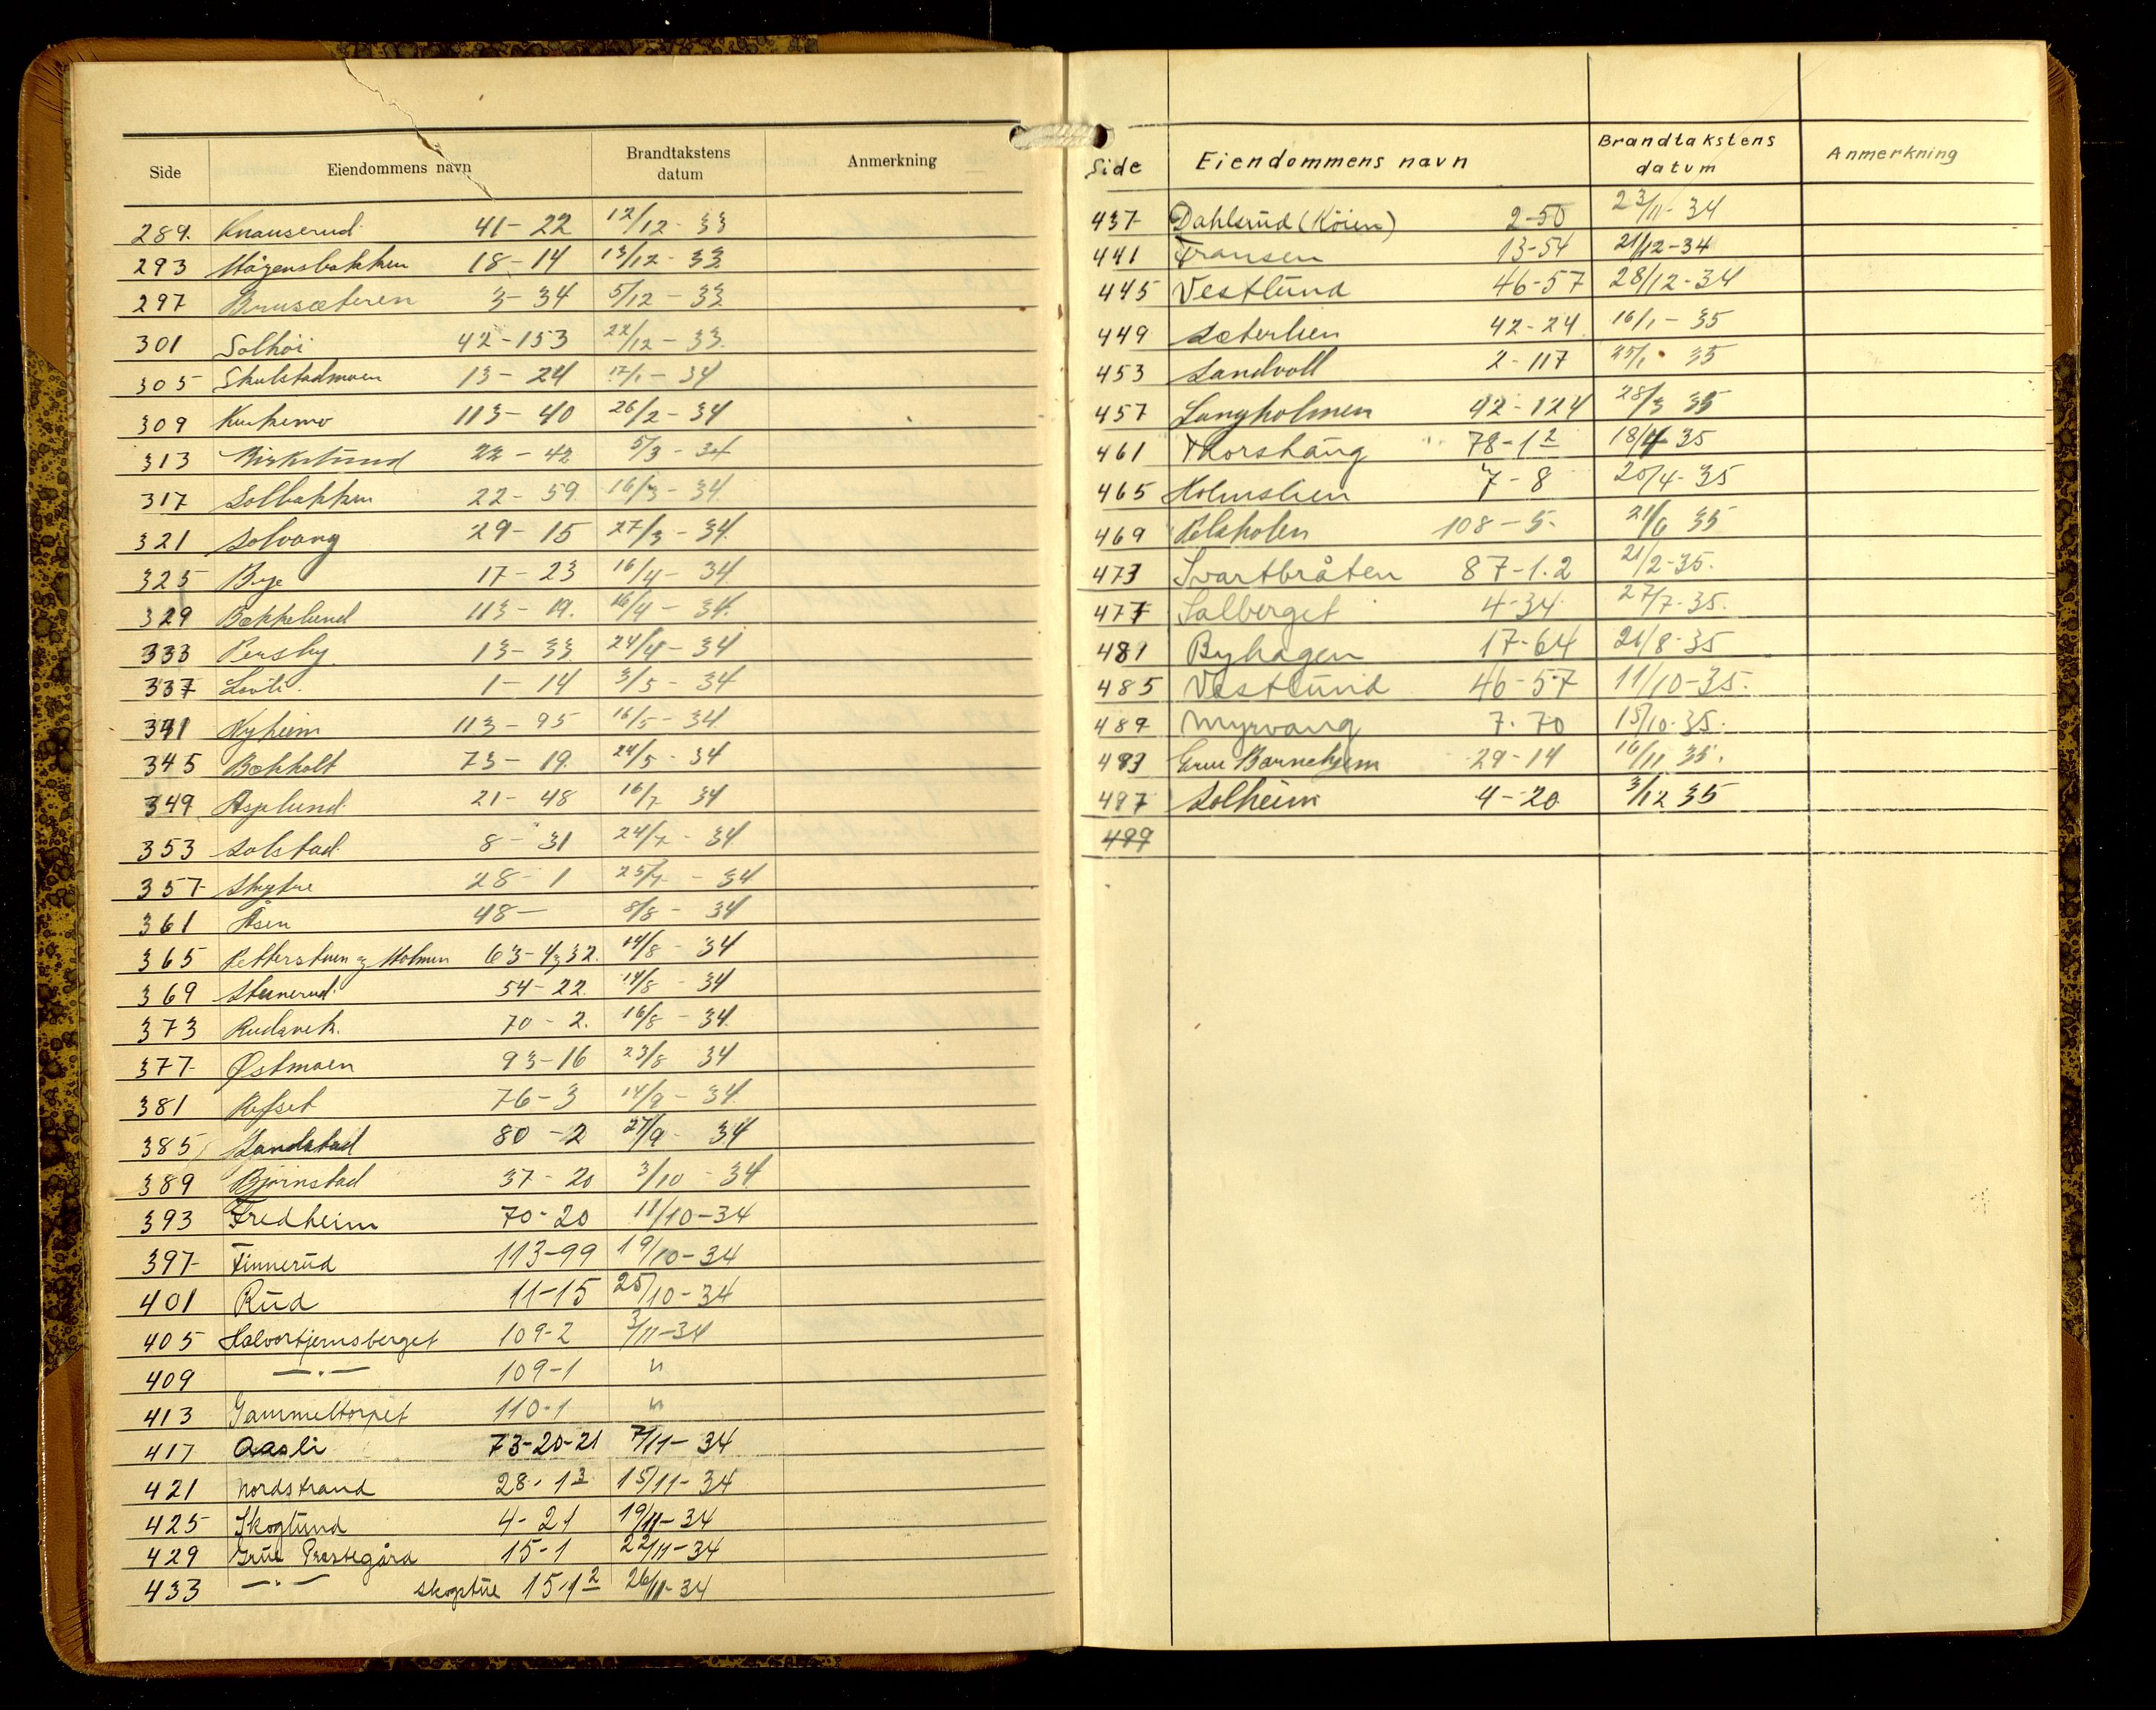 Side Eiendommens navn Brandtakstens datum Anmerkning
289. Knauserud 41-22 12/12-33
293 Mögensbakken 18-14 13/12-33
297 Brusæteren 3-34 5/12-33
301 Solhöi 42-153 22/12-33
305 Skulstadmoen 13-24 17/1-34
309 Kirkemo 113-40 26/2-34
313 Birkelund 22-42 5/3-34
317 Solbakken 22-59 16/3-34
321 Solvang 29-15 27/3-34
325 Bye 17-23 16/4-34
329 Bækkelund 113-19. 16/4-34.
333 Persby 13-33 24/4-34
337 1-14 3/5-34
341 Nyheim 113-95 16/5-34
345 Bækholt 73-19. 24/5-34
349 Asplund 21-48 16/7 34
353 Solstad 8-31 24/7-34
357 28-1 25/7-34
361 Åsen 48- 8/8-34
365 Petterstuen og Holmen 63-4,32. 14/8-34
369 Stenerud 54-22. 14/8-34
373 70-2. 16/8-34.
377 Østmoen 93-16 23/8 34
381 Refset 76-3 14/9-34.
385 Sandstad 80-2 27/9-34
389 Björnstad 37-20 3/10-34
393 Fredheim 70-20 11/10-34
397 Finnerud 113-99 19/10-34
401 Rud 11-15 25/10-34
405 Halvortjernsberget 109-2 3/11-34
409 —"— 109-1 "
413 Gammeltorpet 110-1 "
417 Aasli 73-20-21 7/11-34
421 Nordstrand 28-13 15/11-34
425 Skoglund 4-21 19/11-34
429 Grue Prestegård 15-1 22/11-34
433 —"— skogstue 15-12 26/11-34
Side Eiendommens navn Brandtakstens datum Anmerkning
437 Dahlerud (Köien) 2-50 23/11-34
441 Fransen 13-54 21/12-34
445 Vestlund 46-57 28/12-34
449 Sæterlien 42-24 16/1-35
453 Sandvoll 2-117 25/1-35
457 Langholmen 42-124 28/3 35
461 Thorshaug 78-12 18/4-35
465 Holmslien 7-8 20/4-35
469 108-5- 21/6 35
473 Svartbråten 87-1.2 21/2-35.
477 Solberget 4-34 27/7-35.
481 Byhagen 17-64 21/8-35
485 Vestlund 46-57 11/10-35.
489 Myrvang 7-70 15/10-35.
493 Grue Barnehjem 29-14 16/11 35.
497 Solheim 4-20 3/12 35
499